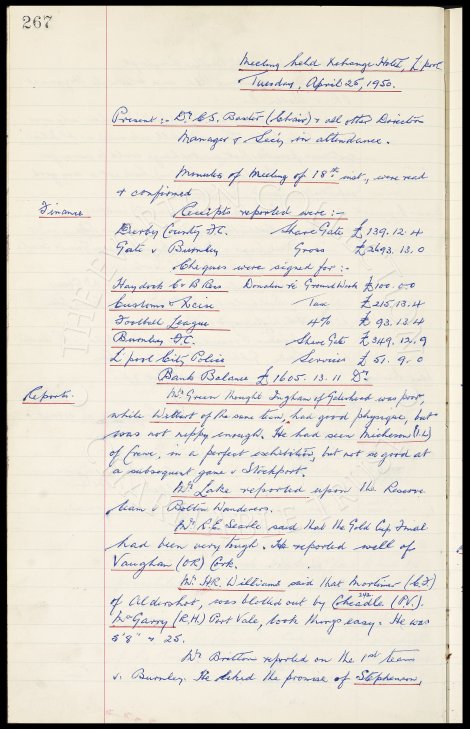 267
Meeting held Exchange Hotel, L'pool
Tuesday, April 25, 1950.
Present :- Dr. C.S. Baxter (Chair) & all other Directors
Manager & Sec'y in attendance.
Minutes of Meeting of 18th inst., were read
& confirmed
Finance Receipts reported were :-
Derby County F.C. Share Gate £139.12.4
Gate v Burnley Gross £2693.13.0
Cheques were signed for :-
Haydock C & B Recs Donation re Ground Work £100.0.0
Customs & Excise Tax £215.13.4
Football League 4% £93.12.4
Burnley F.C. Share Gate £349.12.9
L'pool City Police Services £51.9.0
Bank Balance £1605.13.11 Dr.
Reports. Mr Green thought Ingham of Gateshead was poor,
while Wilbert of the same team, had good physique, but
was not nippy enough. He had seen (I.L)
of Crewe, in a perfect exhibition, but not so good at
a subsequent game v Stockport.
Mr. Lake reported upon the Reserve
team v Bolton Wanderers.
Mr. R.E. Searle said that the Gold Cup Final
had been very tough. He reported well of
Vaughan (OR) Cork.
Mr. A.R. Williams said that Mortimer (C.F.)
of Aldershot, was blotted out by Cheadle (P.V.).
McGarry (R.H.) Port Vale, look things easy. He was
5'8" & 25.
Mr. Britton reported on the 1st team
v. Burnley. He liked the promise of Stephenson,